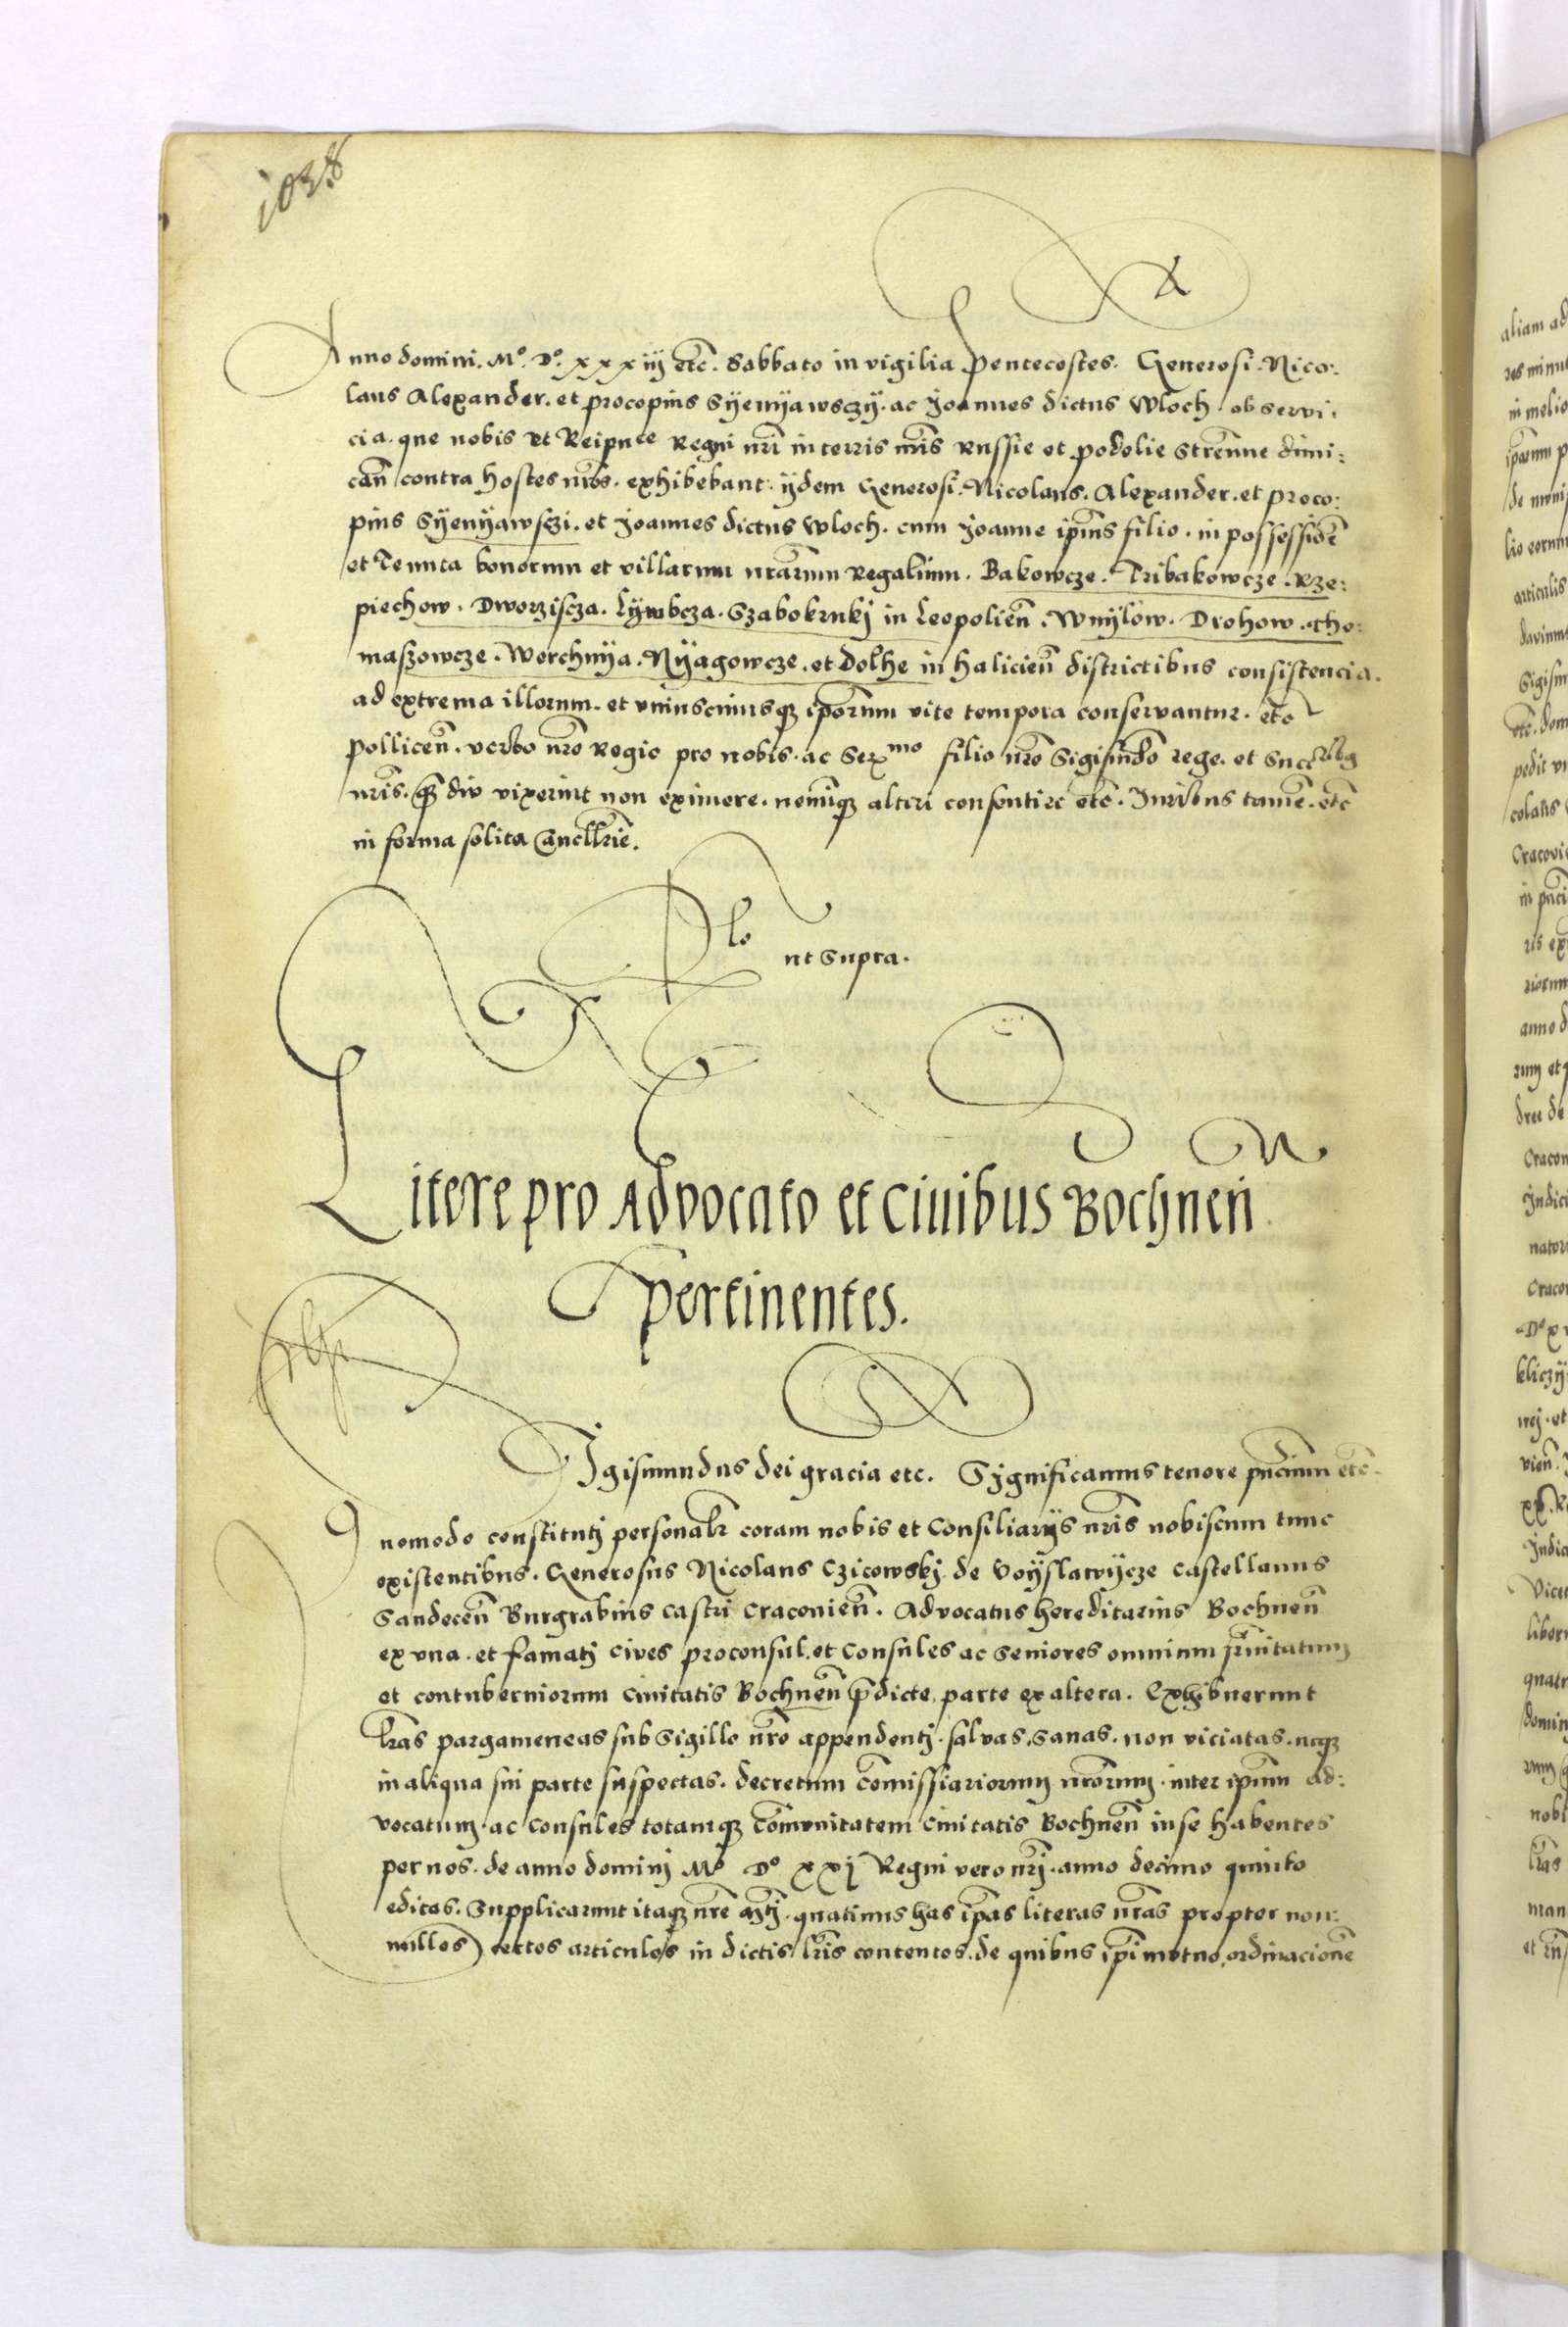 1038
Anno domini. Mo. Do. xxxiij etc̃. Sabbato in vigilia pentecostes. Generosi. Nico:
laus Alexander. et procopius Syenyawsczy. ac Joannes dictus Wloch. ob servi:
cia. que nobis et Reipuce Regni nr̃i in terris nr̃is Russie et podolie strẽnue dimi:
cañ contra hostes nr̃os. exhibebant: ijdem Generosi. Nicolaus. Alexander. et proco:
pius Syenyawsczi. et Joannes dictus Wloch. cum Joanne ip̃ius filio. in possessiõe
et Tenuta bonorum et villarum nr̃arum Regalium. Bakowcze. Tribakowcze. Rze:
piechow. Dworziscza. Lywbcza. Szabokrukj in Leopolieñ. Wnylow. Drohow. tho:
maszowcze. Werchnya. Nyagowcze. et Dolhe in halicieñ districtibus consistencia.
ad extrema illorum. et uniuscuiusq3 ip̃orum vite tempora conservantur. etc
polliceñ. verbo nr̃o Regio pro nobis. ac Sermo filio nr̃o Sigism̃do rege. et
nr̃is. q̃3 diu vixerint non eximere. nemiq3 alteri consentire etc̃. Juribus tamẽ. etc̃
in forma solita Cancellr̃ie.
Rlo ut supra.
Litere pro Advocato et Civibus Bochneñ
pertinentes.
Sigismundus dei gracia etc. Significamus tenore pñcium etc̃.
Quomodo constitutj personalr̃ coram nobis et Consiliarijs nr̃is nobiscum tunc
existentibus. Generosus Nicolaus Czicowskj de Voyslawycze castellanus
Sandeceñ Burgrabius castri cracovieñ. Advocatus hereditarius Bochneñ
ex una. et famatj cives proconsul. et Consules ac Seniores omnium fr̃nitatum
et contuberniorum civitatis Bochneñ p̃dicte, parte ex altera. Exhibuerunt
lr̃as pargameneas sub Sigillo nr̃o appendentj. salvas. sanas. non viciatas. neq3
in aliqua sui parte suspectas. decretum Com̃issiariorum nr̃orum. inter ip̃um ad:
vocatum. ac Consules totamq3 Com̃unitatem Civitatis Bochneñ in se habentes
per nos. de anno dominj Mo Do xxj Regni vero nr̃j. anno decimo quinto
editas. Supplicarunt itaq3 nr̃e M̃tj. quatinus has ip̃as literas nr̃as propter non:
nullos certos articulos in dictis lr̃is contentos. de quibus ip̃i mutuo ordinacione